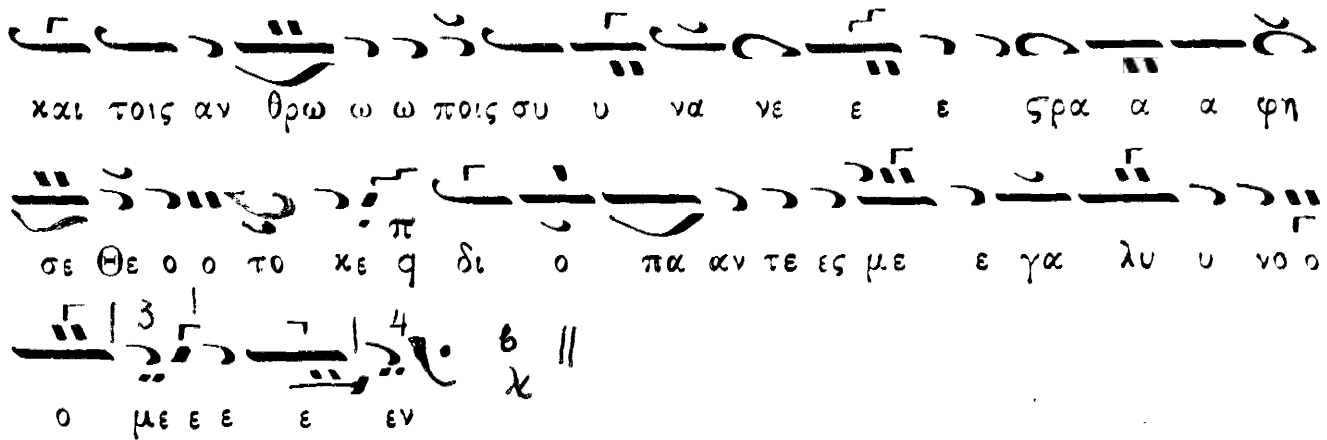 και τοις αν θρω ω ω ποις συ υ να νε ε ε ϛρα α α φη
σε Θε ο ο το κε q δι ο πα αν τε ες με ε γα λυ υ νο ο
ο με ε ε ε εν